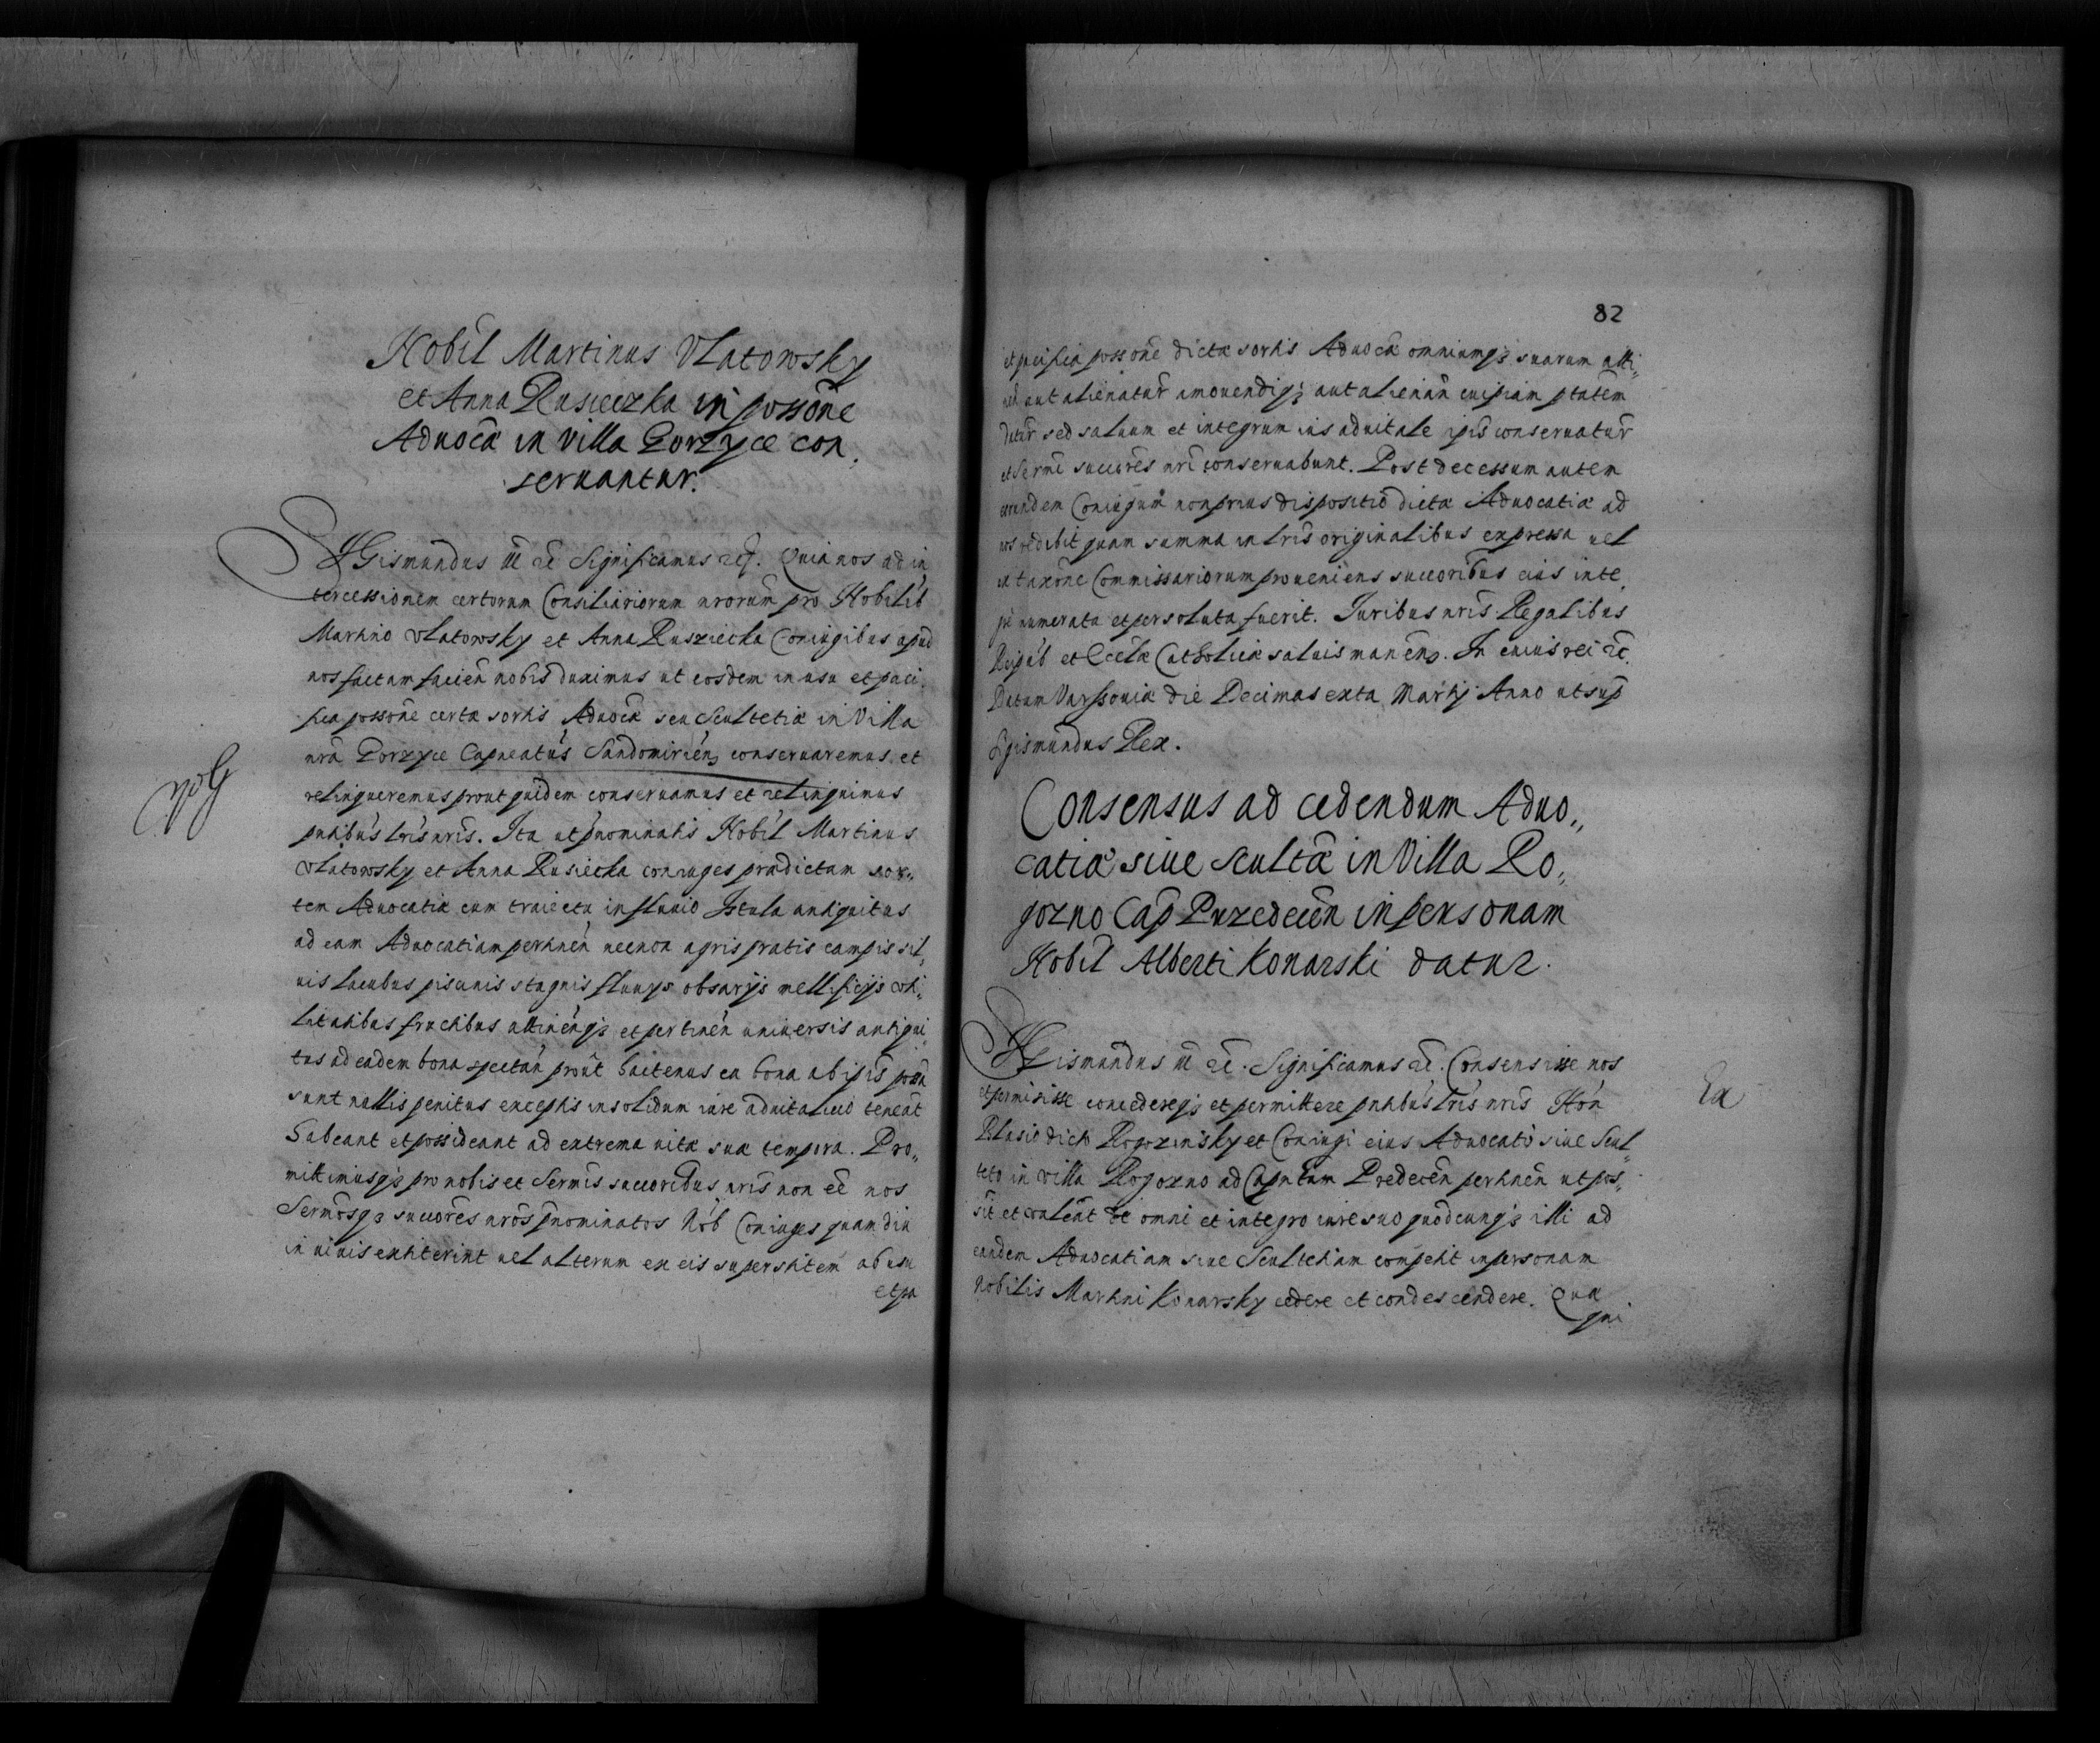 Nobil Martinus Vlatowsky
et Anna Rusieczka in possone
Aduocæ in villa Gorzyce con
seruantur.
SIGismundus III etc Significamus etc. Quia nos ad in
tercessionem certorum Consiliariorum nrorum pro Nobilib
Martino Vlatowsky et Anna Rusziecka Coniugibus apud
nos factam facien nobis duximus ut eosdem in usu et paci
fica possone certæ sortis Aduocæ seu Scultetiæ in Villa
nra Gorzyce Capneatus Sandomirien conseruaremus et
relinqueremus prout quidem conseruamus et relinquimus
pntibus lris nris. Ita ut pnominatis Nobil Martinus
Vlatowsky et Anna Rusiecka coniuges prædictam sor,,
tem Aduocatiæ cum traiectu in fluuio Istula antiquitus
ad eam Aduocatiam pertinen necnon agris pratis campis sil,,
uis lacubus piscinis stagnis fluuys obsarijs mellificijs vti,
litatibus fructibus attinengz et pertinen uniuersis antiqui,
tus ad eadem bona spectan prout hactenus ea bona ab ipsis possa
sunt nullis penitus exceptis in solidum iure aduitalitio teneat
habeant et possideant ad extrema uitæ suæ tempora. Pro,,
mittimusqz pro nobis et Sermis succoribus nris non ee nos
Sermosqz succores nros pnominatos Nob Coniuges quamdiu
in uiuis extiterint uel alterum ex eis superstitem ab usu
et pa
82
et pacifica possone dictæ sortis Aduocæ omniumqz suarum atti,,
nen aut alienatur amouendiqz aut alienan cuipiam ptatem
datur sed saluum et integrum ius aduitale ipsis conseruatur
et Sermi succores nri conseruabunt. Post decessum autem
eorundem Coniugum non prius dispositio dictæ Aduocatiæ ad
nos redibit quam summa in lris originalibus expressa uel
ex taxone Commissariorum proueniens succoribus eius inte,
gre numerata et persoluta fuerit. Iuribus nris Regalibus
Reipub et Eccla Catholicæ saluis manen. In cuius rei etc.
Datum Varssouiæ die Decimasexta Martij Anno ut sup
Sigismundus Rex.
Consensus ad cedendum Aduo,,
catiæ siue Scultæ in Villa Ro,,
gozno Cap Przedecen in personam
Nobil Alberti Konarski datur.
SIGismundus III etc. Significamus etc. Consensisse nos
et permisisse concedereqz et permittere pntibus lris nris Hon
Blasio dicto Rogozinsky et Coniugi eius Aduocato siue Scul,,
teto in villa Rogozno ad Capntum Predecen pertinen ut pos,,
sit et ualeat de omni et integro iure suo quodcunqz illi ad
eandem Aduocatiam siue Scultetiam competit in personam
Nobilis Martini Konarsky cedere et condescendere. Qua
qui
Ex